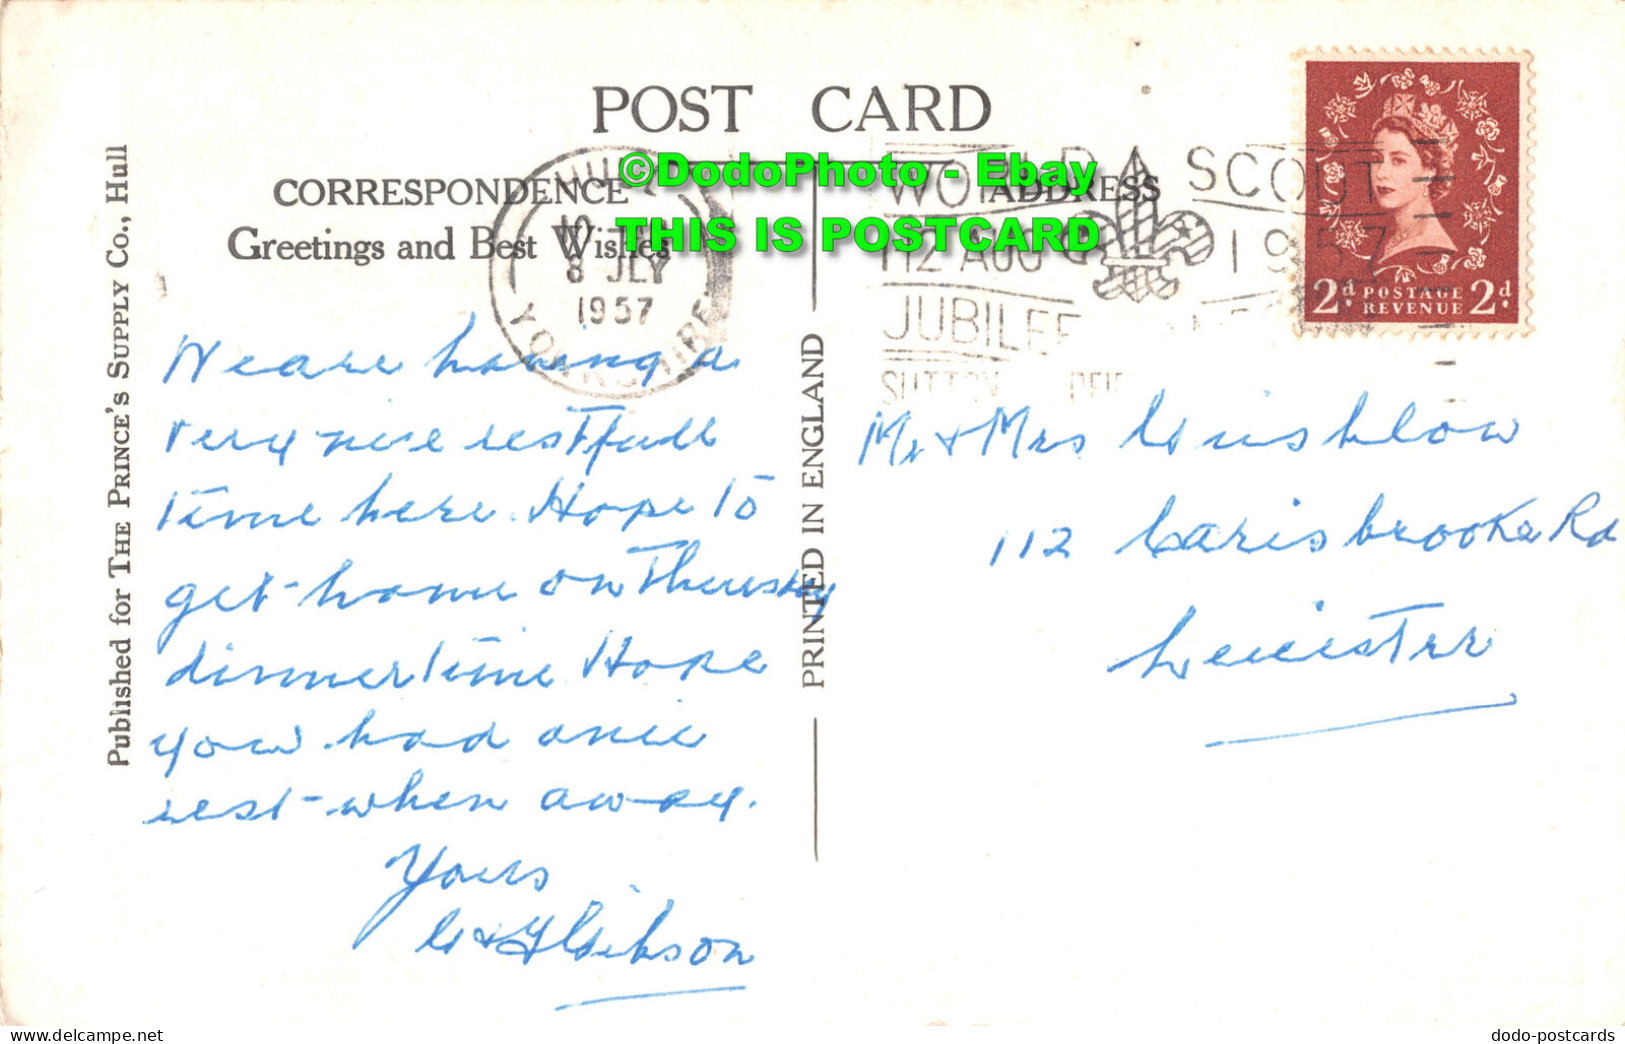 POST CARD
©DodoPhoto - Ebay
THIS IS POSTCARD
CORRESPONDENCE
Greetings and Best Wishes
ADDRESS
Published for THE PRINCE'S SUPPLY Co., Hull
PRINTED IN ENGLAND
HULL
8 JLY
1957
YORKSHIRE
WORLD SCOUT
1-12 AUG 1957
JUBILEE
SUTTON
2d POSTAGE 2d
REVENUE
We are having a
very nice restfull
time here. Hope to
get home on Thursday
dinner time Hope
you had a nice
rest when away.
Yours
Gibson
Mr & Mrs
112 Carisbrooke Rd
Leicester
dodo-postcards